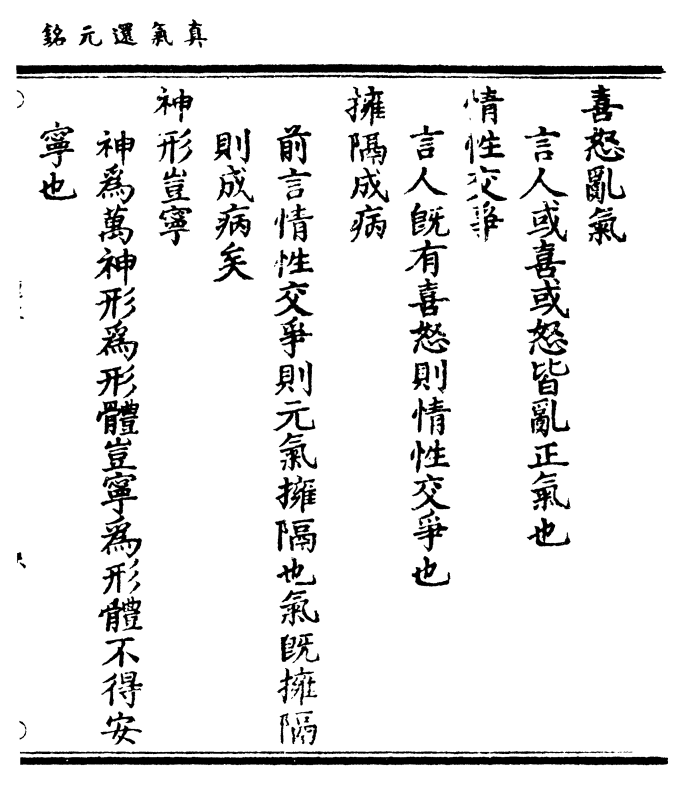 真氣還元銘
喜怒亂氣
言人或喜或怒皆亂正氣也
情性交爭
言人旣有喜怒則情性交爭也
擁隔成病
前言情性交爭則元氣擁隔也氣旣擁隔
則成病矣
神形豈寧
神爲萬神形爲形體豈寧爲形體不得安
寧也